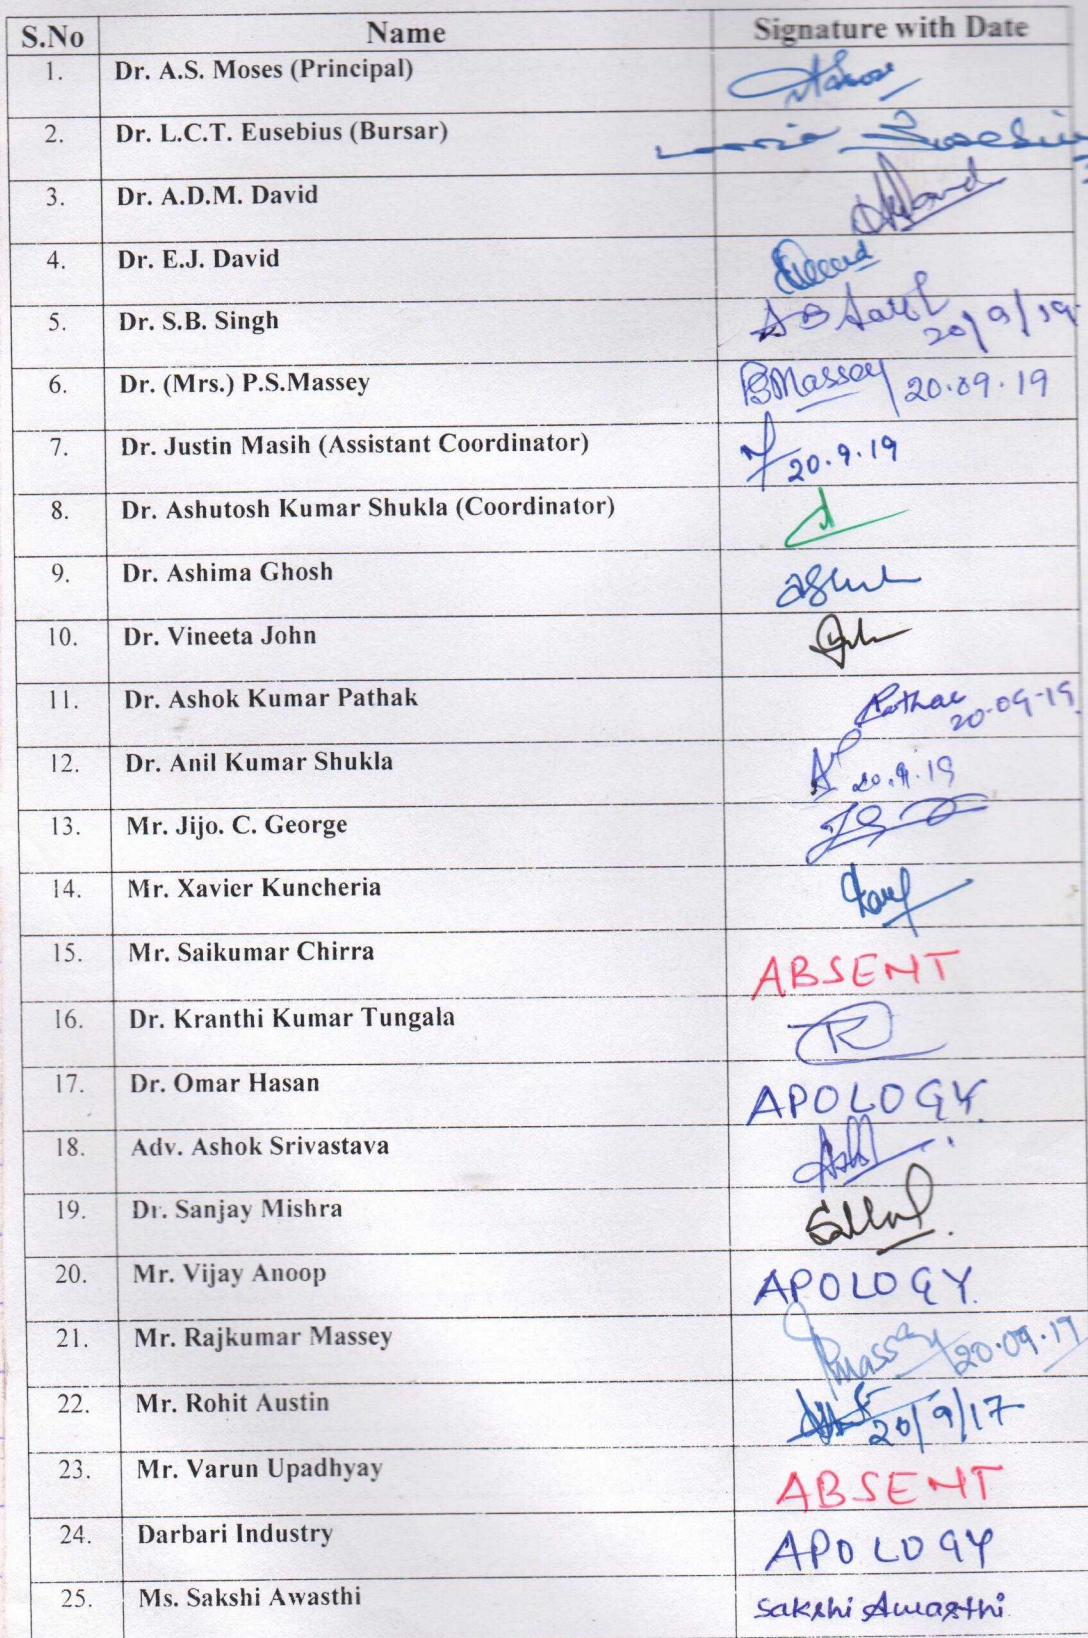 S.No Name Signature with Date
1. Dr. A.S. Moses (Principal)
2. Dr. L.C.T. Eusebius (Bursar)
3. Dr. A.D.M. David
4. Dr. E.J. David
5. Dr. S.B. Singh 20/9/19
6. Dr. (Mrs.) P.S.Massey PSMassey 20.09.19
7. Dr. Justin Masih (Assistant Coordinator) 20.9.19
8. Dr. Ashutosh Kumar Shukla (Coordinator)
9. Dr. Ashima Ghosh
10. Dr. Vineeta John
11. Dr. Ashok Kumar Pathak 20-09-19
12. Dr. Anil Kumar Shukla 20.9.19
13. Mr. Jijo. C. George
14. Mr. Xavier Kuncheria
15. Mr. Saikumar Chirra ABSENT
16. Dr. Kranthi Kumar Tungala
17. Dr. Omar Hasan APOLOGY.
18. Adv. Ashok Srivastava
19. Dr. Sanjay Mishra
20. Mr. Vijay Anoop APOLOGY.
21. Mr. Rajkumar Massey 20.09.19
22. Mr. Rohit Austin 20/9/17
23. Mr. Varun Upadhyay ABSENT
24. Darbari Industry APOLOGY
25. Ms. Sakshi Awasthi Sakshi Awasthi